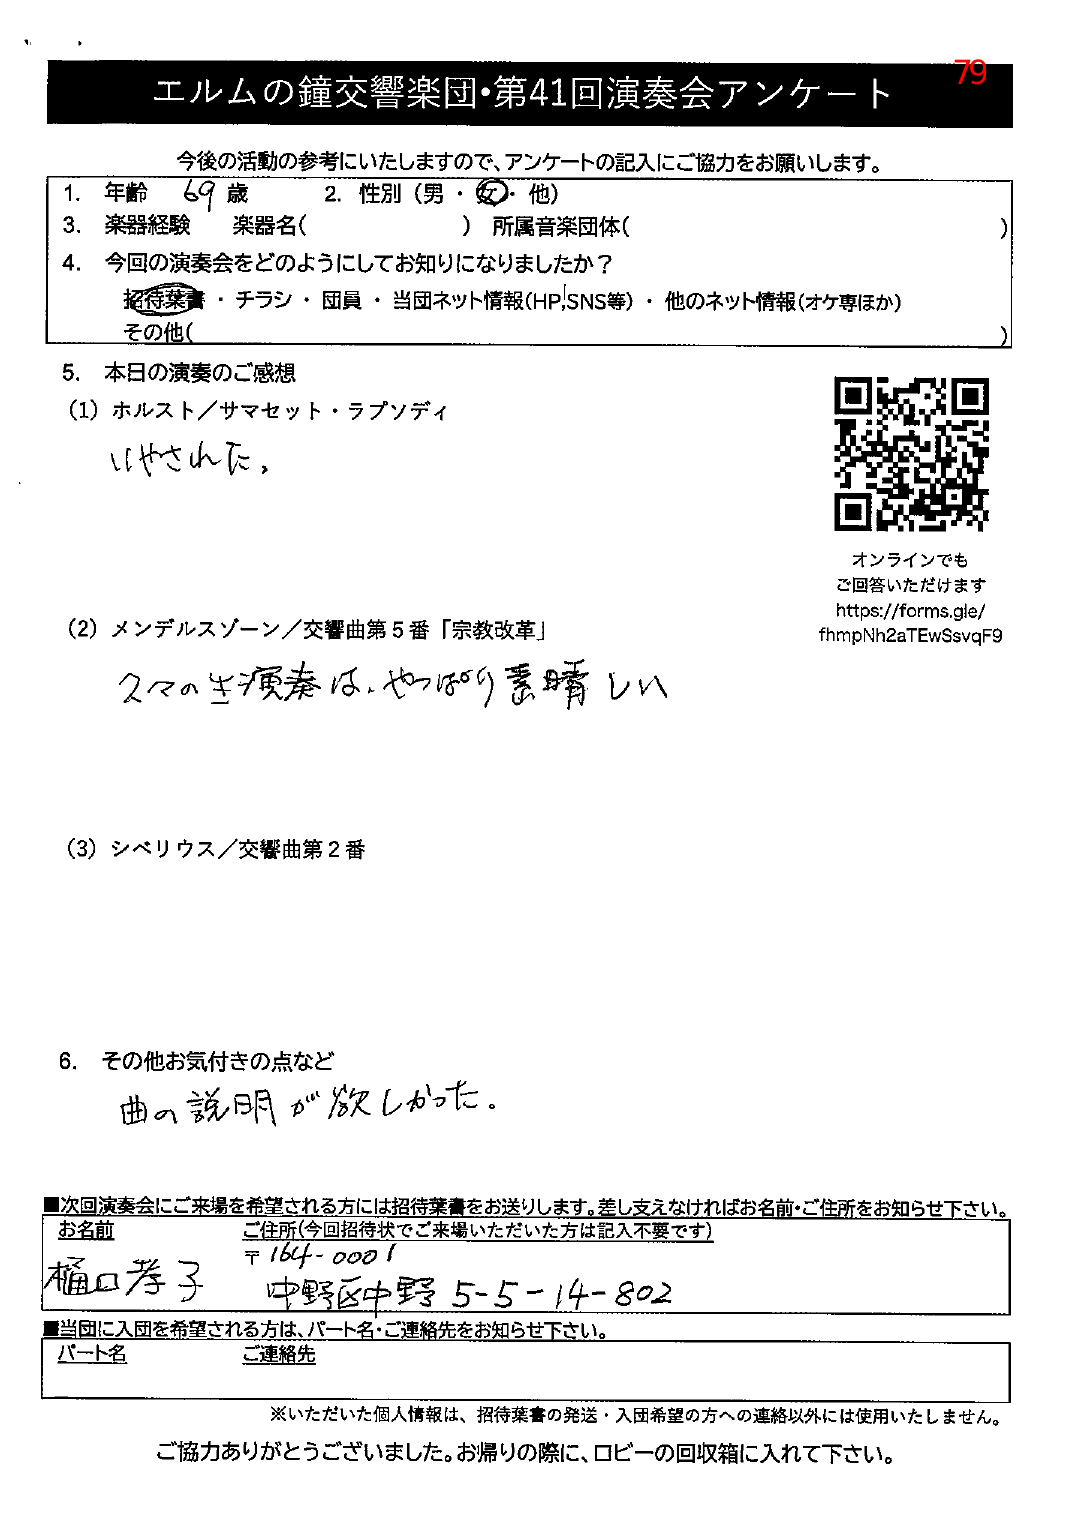 79
エルムの鐘交響楽団・第41回演奏会アンケート
今後の活動の参考にいたしますので、アンケートの記入にご協力をお願いします。
1. 年齢 69 歳 2. 性別（男・女・他）
3. 楽器経験 楽器名( ) 所属音楽団体( )
4. 今回の演奏会をどのようにしてお知りになりましたか？
招待葉書・チラシ・団員・当団ネット情報(HP,SNS等)・他のネット情報(オケ専ほか)
その他( )
5. 本日の演奏のご感想
（1）ホルスト／サマセット・ラプソディ
いやされた。
オンラインでも
ご回答いただけます
https://forms.gle/
fhmpNh2aTEwSsvqF9
（2）メンデルスゾーン／交響曲第５番「宗教改革」
久々の生演奏は、やっぱり素晴しい
（3）シベリウス／交響曲第２番
6. その他お気付きの点など
曲の説明が欲しかった。
■次回演奏会にご来場を希望される方には招待葉書をお送りします。差し支えなければお名前・ご住所をお知らせ下さい。
お名前 ご住所(今回招待状でご来場いただいた方は記入不要です)
〒164-0001
樋口孝子 中野区中野 5-5-14-802
■当団に入団を希望される方は、パート名・ご連絡先をお知らせ下さい。
パート名 ご連絡先
※いただいた個人情報は、招待葉書の発送・入団希望の方への連絡以外には使用いたしません。
ご協力ありがとうございました。お帰りの際に、ロビーの回収箱に入れて下さい。